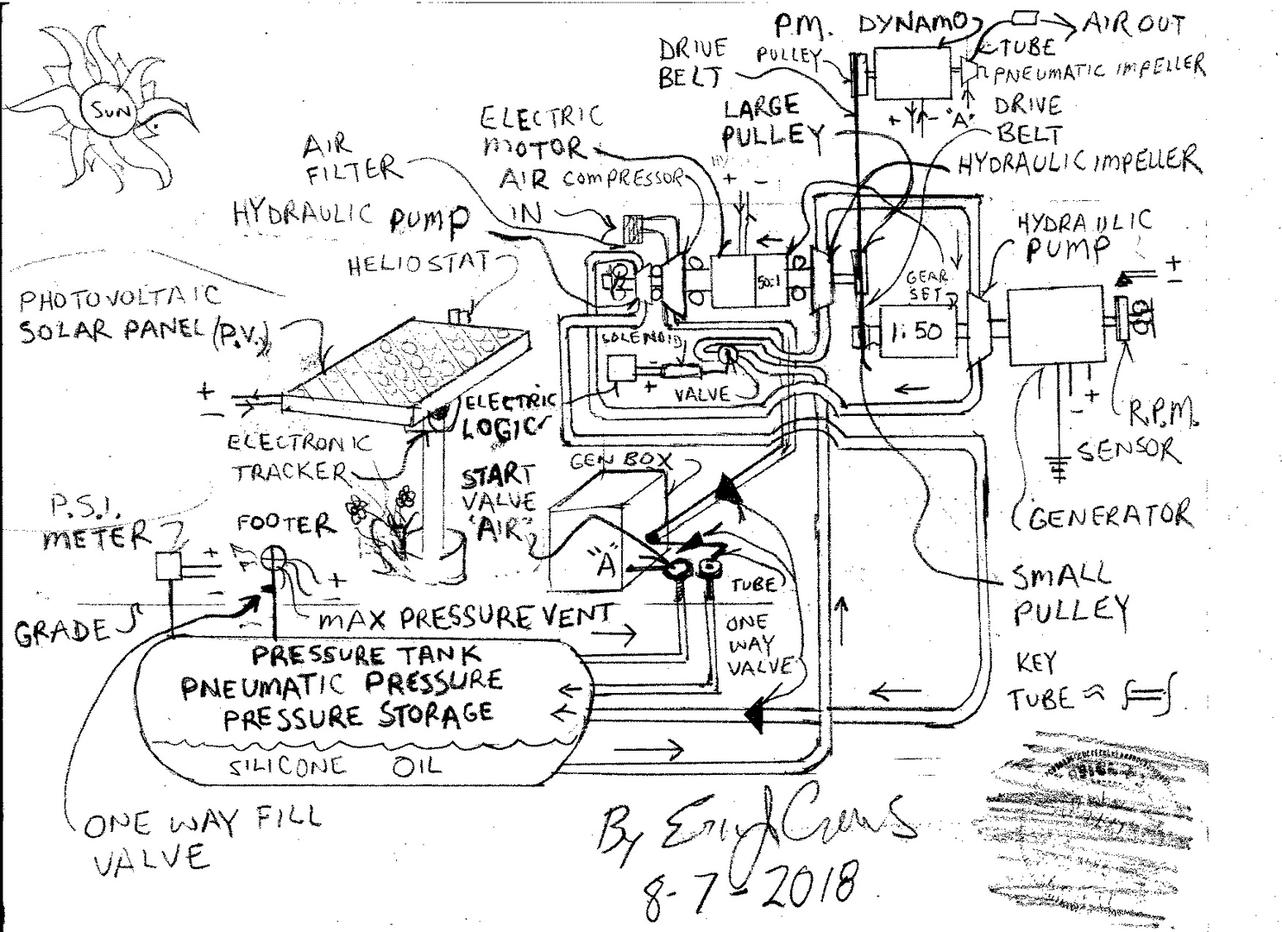 SUN
P.M. DYNAMO
AIR OUT
TUBE
PNEUMATIC IMPELLER
PULLEY
DRIVE
BELT
+ - "A"
DRIVE
BELT
LARGE
PULLEY
HYDRAULIC IMPELLER
ELECTRIC
MOTOR
AIR COMPRESSOR
IN
AIR
FILTER
HYDRAULIC PUMP
HELIOSTAT
+ -
HYDRAULIC
PUMP
+
-
PHOTOVOLTAIC
SOLAR PANEL (P.V.)
50:1
GEAR
SET
1:50
SOLENOID
+
-
VALVE
+
-
ELECTRIC
LOGIC
+
-
R.P.M.
SENSOR
ELECTRONIC
TRACKER
GEN BOX
START
VALVE
"AIR"
"A"
GENERATOR
P.S.I.
METER
FOOTER
+
-
+
-
TUBE
SMALL
PULLEY
GRADE
MAX PRESSURE VENT
ONE
WAY
VALVE
PRESSURE TANK
PNEUMATIC PRESSURE
PRESSURE STORAGE
SILICONE OIL
KEY
TUBE ≈
ONE WAY FILL
VALVE
By Eric Crews
8-7-2018